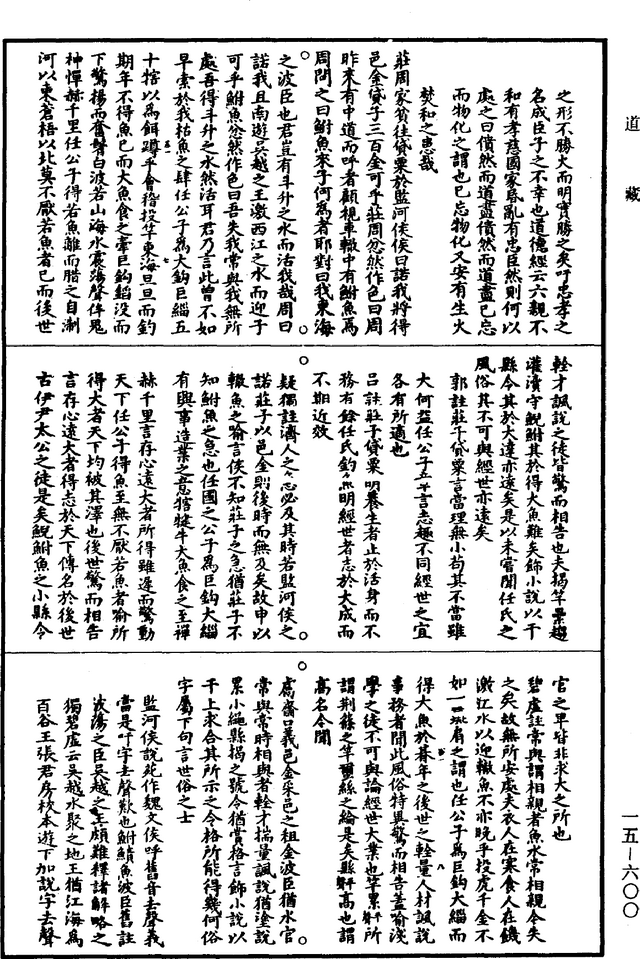 道藏
之形不勝火而明實勝之矣吁忠孝之
名成臣子之不幸也道德經云六親不
和有孝慈國家昏亂有忠臣然則何以
處之曰僨然而道盡僨然而道盡已忘
而物化之謂也已忘物化又安有生火
焚和之患哉
莊周家貧往貸粟於監河侯侯曰諾我將得
邑金貸子三百金可乎莊周忿然作色曰周
昨來有中道而呼者顧視車轍中有鮒魚焉
周問之曰鮒魚來子何為者耶對曰我東海
之波臣也君豈有斗升之水而活我哉周曰
諾我且南遊吳越之王激西江之水而迎子
可乎鮒魚忿然作色曰吾失我常與我無所
處吾得斗升之水然活耳君乃言此曾不如
早索於我枯魚之肆任公子為大鈎巨緇五
十犗以為餌蹲乎會稽投竿東海旦旦而釣
期年不得魚已而大魚食之牽巨鈎錎沒而
下驚揚而奮鬐白波若山海水震蕩聲侔鬼
神憚赫千里任公子得若魚離而腊之自淛
河以東蒼梧以北莫不厭若魚者已而後世
輇才諷說之徒皆驚而相告也夫揭竿累趨
灌瀆守鯢鮒其於得大魚難矣飾小說以干
縣令其於大達亦遠矣是以未嘗聞任氏之
風俗其不可與經世亦遠矣
郭註莊子貸粟言當理無小苟其不當雖
大何益任公子五十言志趣不同經世之宜
各有所適也
呂註莊子貸粟明養生者止於活身而不
務有餘任氏釣魚明經世者志於大成而
不期近效
疑獨註濟人之念必及其時若監河侯之
諾莊子以邑金則後時而無及矣故申以
轍魚之喻言侯不知莊子之急猶莊子不
知鮒魚之急也任國之公子為巨鈎大緇
有興事造業之意犗犍牛大魚食之至憚
赫千里言存心遠大者所得雖遲而驚動
天下任公子得魚至無不厭若魚者喻所
得大者天下均被其澤也後世驚而相告
言存心遠大者得志於天下傳名於後世
古伊尹太公之徒是矣鯢鮒魚之小縣令
官之卑皆非求大之所也
碧虛註常與謂相親者魚水常相親今失
之矣故無所安處夫衣人在寒食人在饑
激江水以迎轍魚不亦晚乎投虎千金不
如一豚肩之謂也任公子為巨鈎大緇而
得大魚於朞年之後世之輇量人材諷說
事務者聞此風俗特異驚而相告蓋喻淺
學之徒不可與論經世大業也竿累所
謂荊篠之竿繭絲之綸是矣縣高也謂
高名令聞
鬳齋口義邑金采邑之租金波臣猶水官
常與常時相與者輇才揣量諷說猶塗說
累小繩縣揭之號令猶賞格言飾小說以
干上求合其所示之令格所能得幾何俗
字屬下句言世俗之士
監河侯說苑作魏文侯呼舊音去聲義
當是吁字去聲歎也鮒鰿魚波臣舊註
波蕩之臣吳越之王頗難釋諸解略之
獨碧虛云吳越水聚之地王猶江海為
百谷王張君房校本遊下加說字去聲
一五—六〇〇